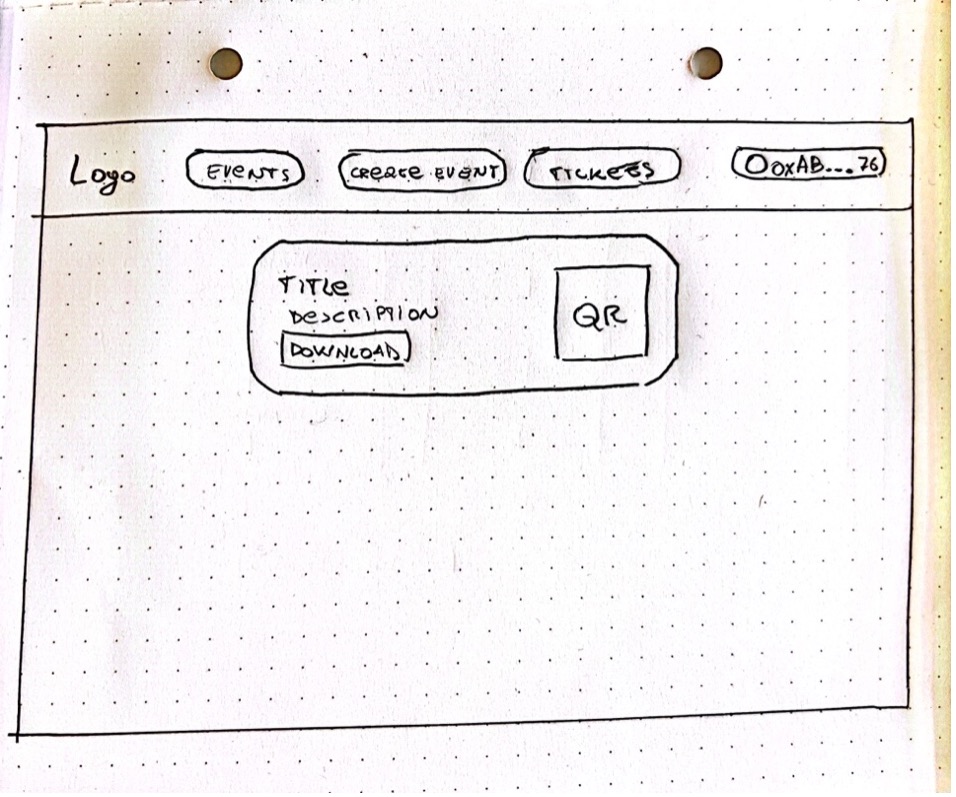 Logo
EVENTS
CREATE EVENT
TICKETS
0xAB...76
TITLE
DESCRIPTION
DOWNLOAD
QR